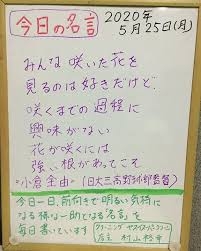 今日の名言
2020年
5月25日(月)
みんな 咲いた 花を
見るのは好きだけど
咲くまでの過程に
興味がない
花が咲くには
強い根があってこそ
小倉全由(日大三高野球部監督)
今日一日、前向きで明るい気持
になる様な一助となる名言を
毎日書いています
クリーニング
店主 村山